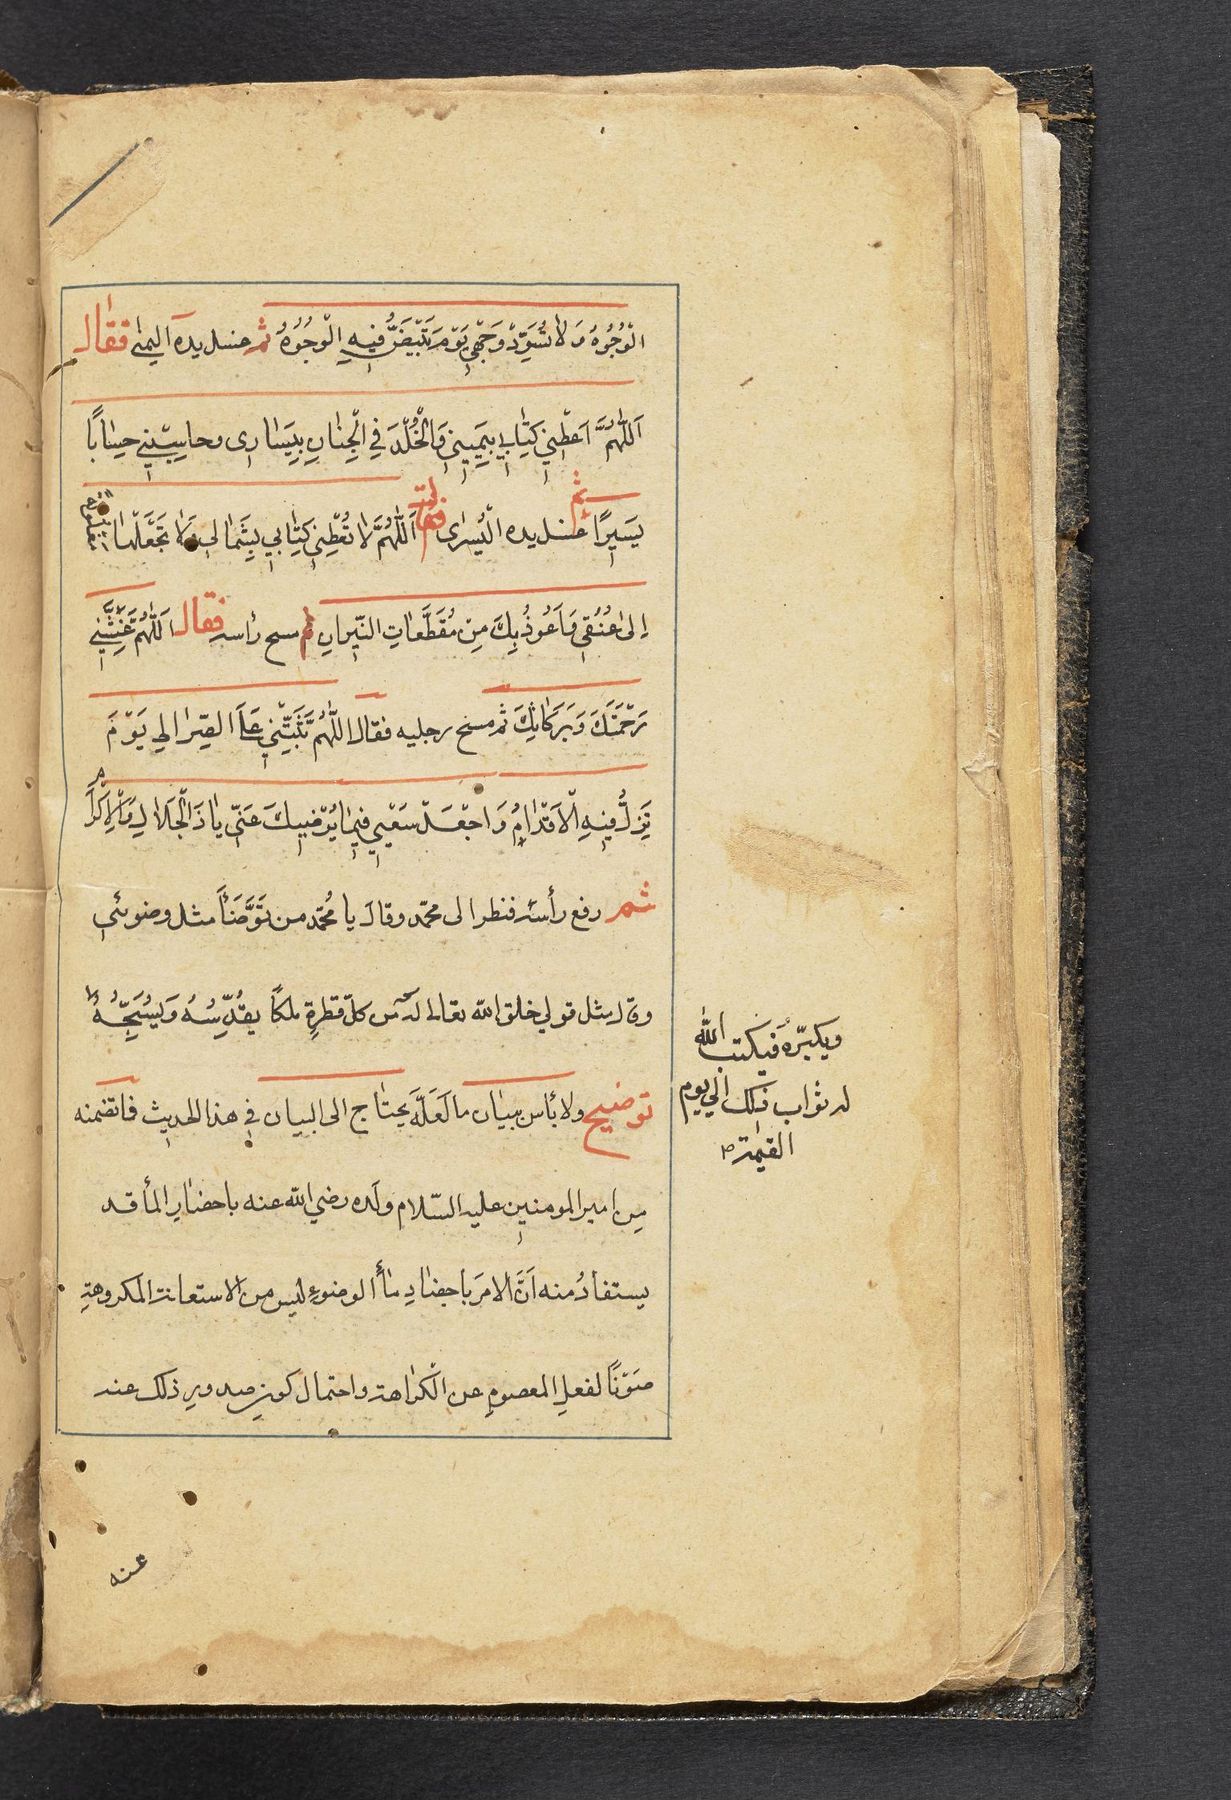 الْوُجُوهُ وَلاٰ تُسَوِّدْ وَجْهِي يَوْمَ تَبْيَضُّ فِيهِ الْوُجُوهُ ثم غسل يده اليمنى فقال
اَللّٰهُمَّ اَعْطِنِي كِتٰابِي بِيَمِينِي وَالْخُلْدَ فِي الْجِنٰانِ بِيَسٰارِي وحاسِبْنِي حِسٰابًا
يَسِيرًا ثم غسل يده الْيُسْرٰى فقال اَللّٰهُمَّ لاٰ تُعْطِنِي كِتٰابِي بِشِمٰالِي وَلاٰ تَجْعَلْهٰا
إِلىٰ عُنُقِي وَاَعُوذُ بِكَ مِنْ مُقَطَّعٰاتِ النّيرانِ ثم مسح رأسه فقال اَللّٰهُمَّ غَشِّنِي
رَحْمَتَكَ وَبَرَكٰاتِكَ ثم مسح رجليه فقال اللّٰهُمَّ ثَبِّتْنِي عَلَى الصِّرٰاطِ يَوْمَ
تَزِلُّ فِيهِ الْاَقْدٰامُ وَاجْعَلْ سَعْيِي فِيمٰا يُرْضِيكَ عَنّي يٰا ذَا الْجَلاٰلِ وَالْاِكْرٰامِ
ثم رفع رأسه فنظر الى محمّد وقال يا مُحمّد من تَوَضَّأَ مثل وضوئي
وقال مثل قولي خلق الله تعالى له من كلّ قطرةٍ ملكًا يقدِّسُهُ وَيُسَبِّحُهُ
ويكبّرهُ فيكتب الله
له ثواب ذلك الى يوم
القيمة
توضيح ولا بأس ببيان ما لَعَلَّهُ يحتاج الى البيان في هذا الحديث فما تضمنه
مِن امير المومنين عليه السّلام ولَده رضي الله عنه باحضارِ المأ قد
يستفادُ منه اَنَّ الامرَ باحضارِ مأ الوضوءِ ليس من الاستعانة المكروهةِ
صَوْنًا لفعلِ المعصومِ عن الْكراهة واحتمال كون صدورِ ذلك عند
عنه